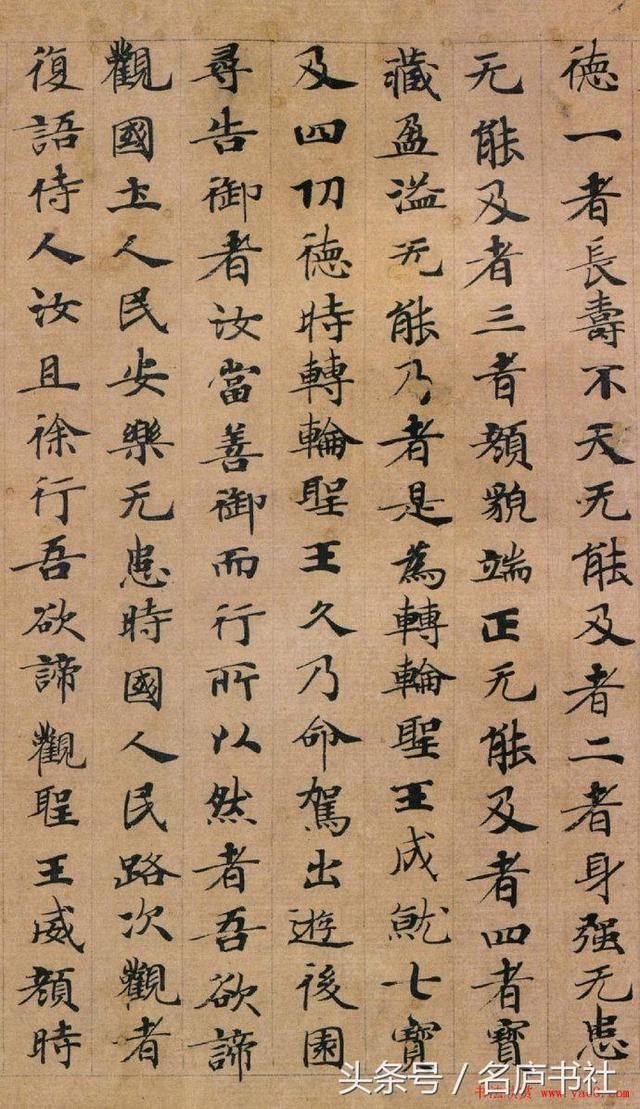 德一者長壽不夭无能及者二者身强无患
无能及者三者顏貌端正无能及者四者寶
藏盈溢无能乃者是為轉輪聖王成就七寶
及四功德時轉輪聖王久乃命駕出遊後園
尋告御者汝當善御而行所以然者吾欲諦
觀國土人民安樂无患時國人民路次觀者
復語侍人汝且徐行吾欲諦觀聖王威顏時
头条号 / 名庐书社
www.yac8.com